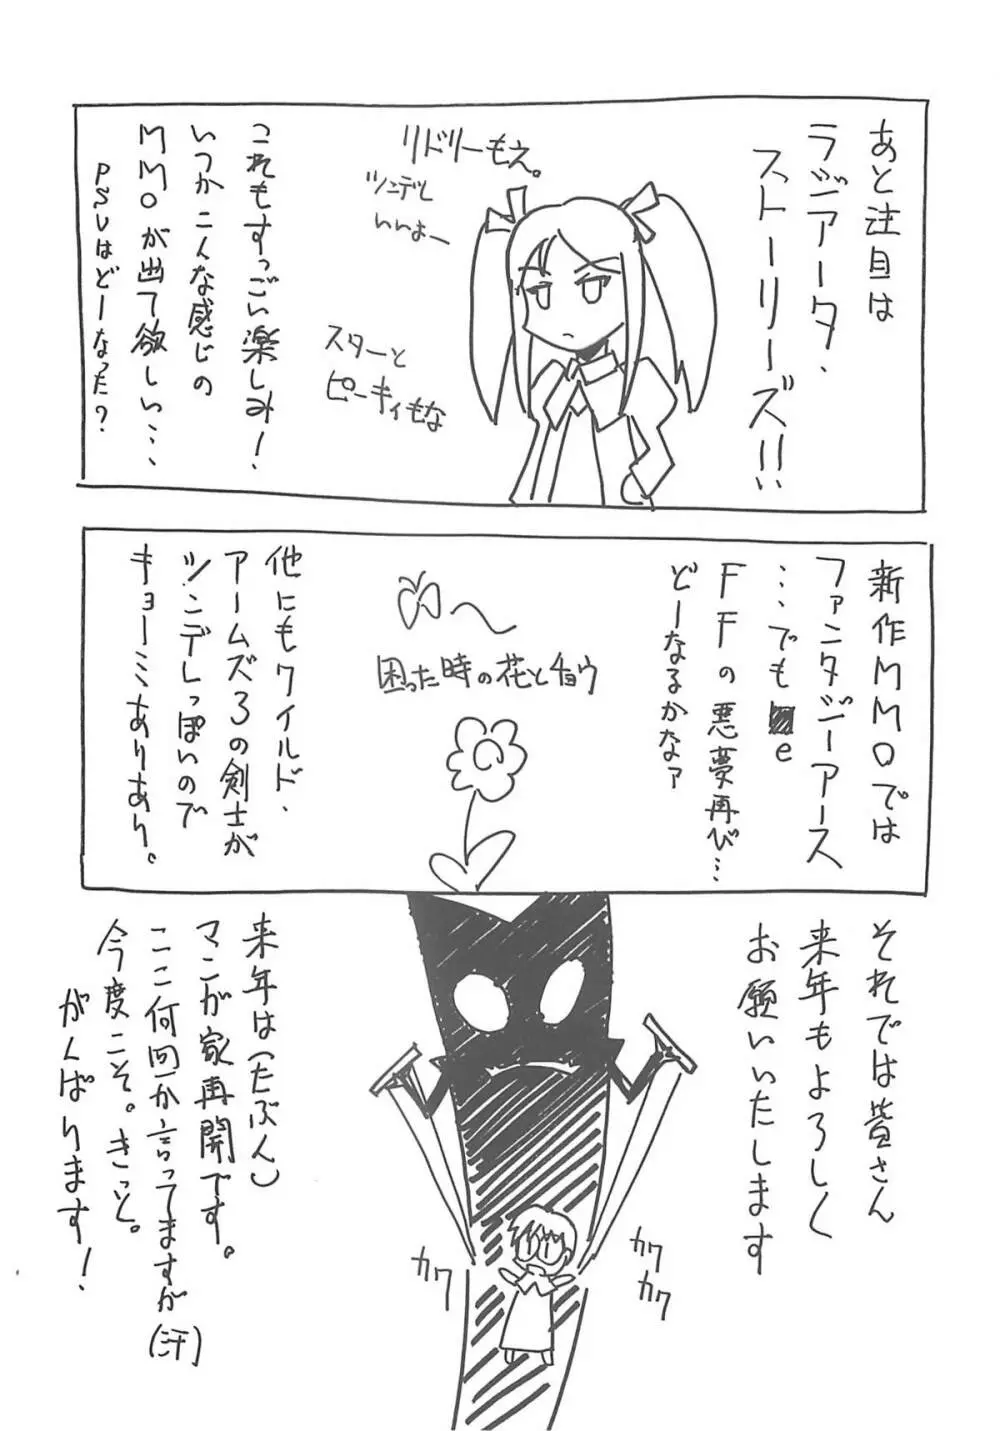 あと注目は
ラジアータ・
ストーリーズ!!
リドリーもえ。
ツンデレ
いいよー
スターと
ピーキィもな
これもすっごい楽しみ!
いつかこんな感じの
MMOが出て欲しい…
PSUはどーなった?
新作MMOでは
ファンタジーアース
…でもe
FFの悪夢再び…
どーなるかなァ
困った時の花とチョウ
他にもワイルド・
アームズ3の剣士が
ツンデレっぽいので
キョーミありあり。
それでは皆さん
来年もよろしく
お願いいたします
カク
カク
カク
来年は(たぶん)
マンガ家再開です。
ここ何回か言ってますが(汗)
今度こそ。きっと。
がんばります!